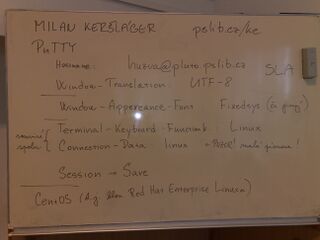 MILAN KERŠLÁGER pslib.cz/ke
PuTTY
Hostname: huzva@pluto.pslib.cz
SLA
Window - Translation UTF-8
Window - Appereance - Font Fixedsys (či jiný)
Terminal - Keyboard - Function Linux
Connection - Data linux POZOR! malé písmeno!
Session → Save
CentOS (Red Hat Enterprise Linux)